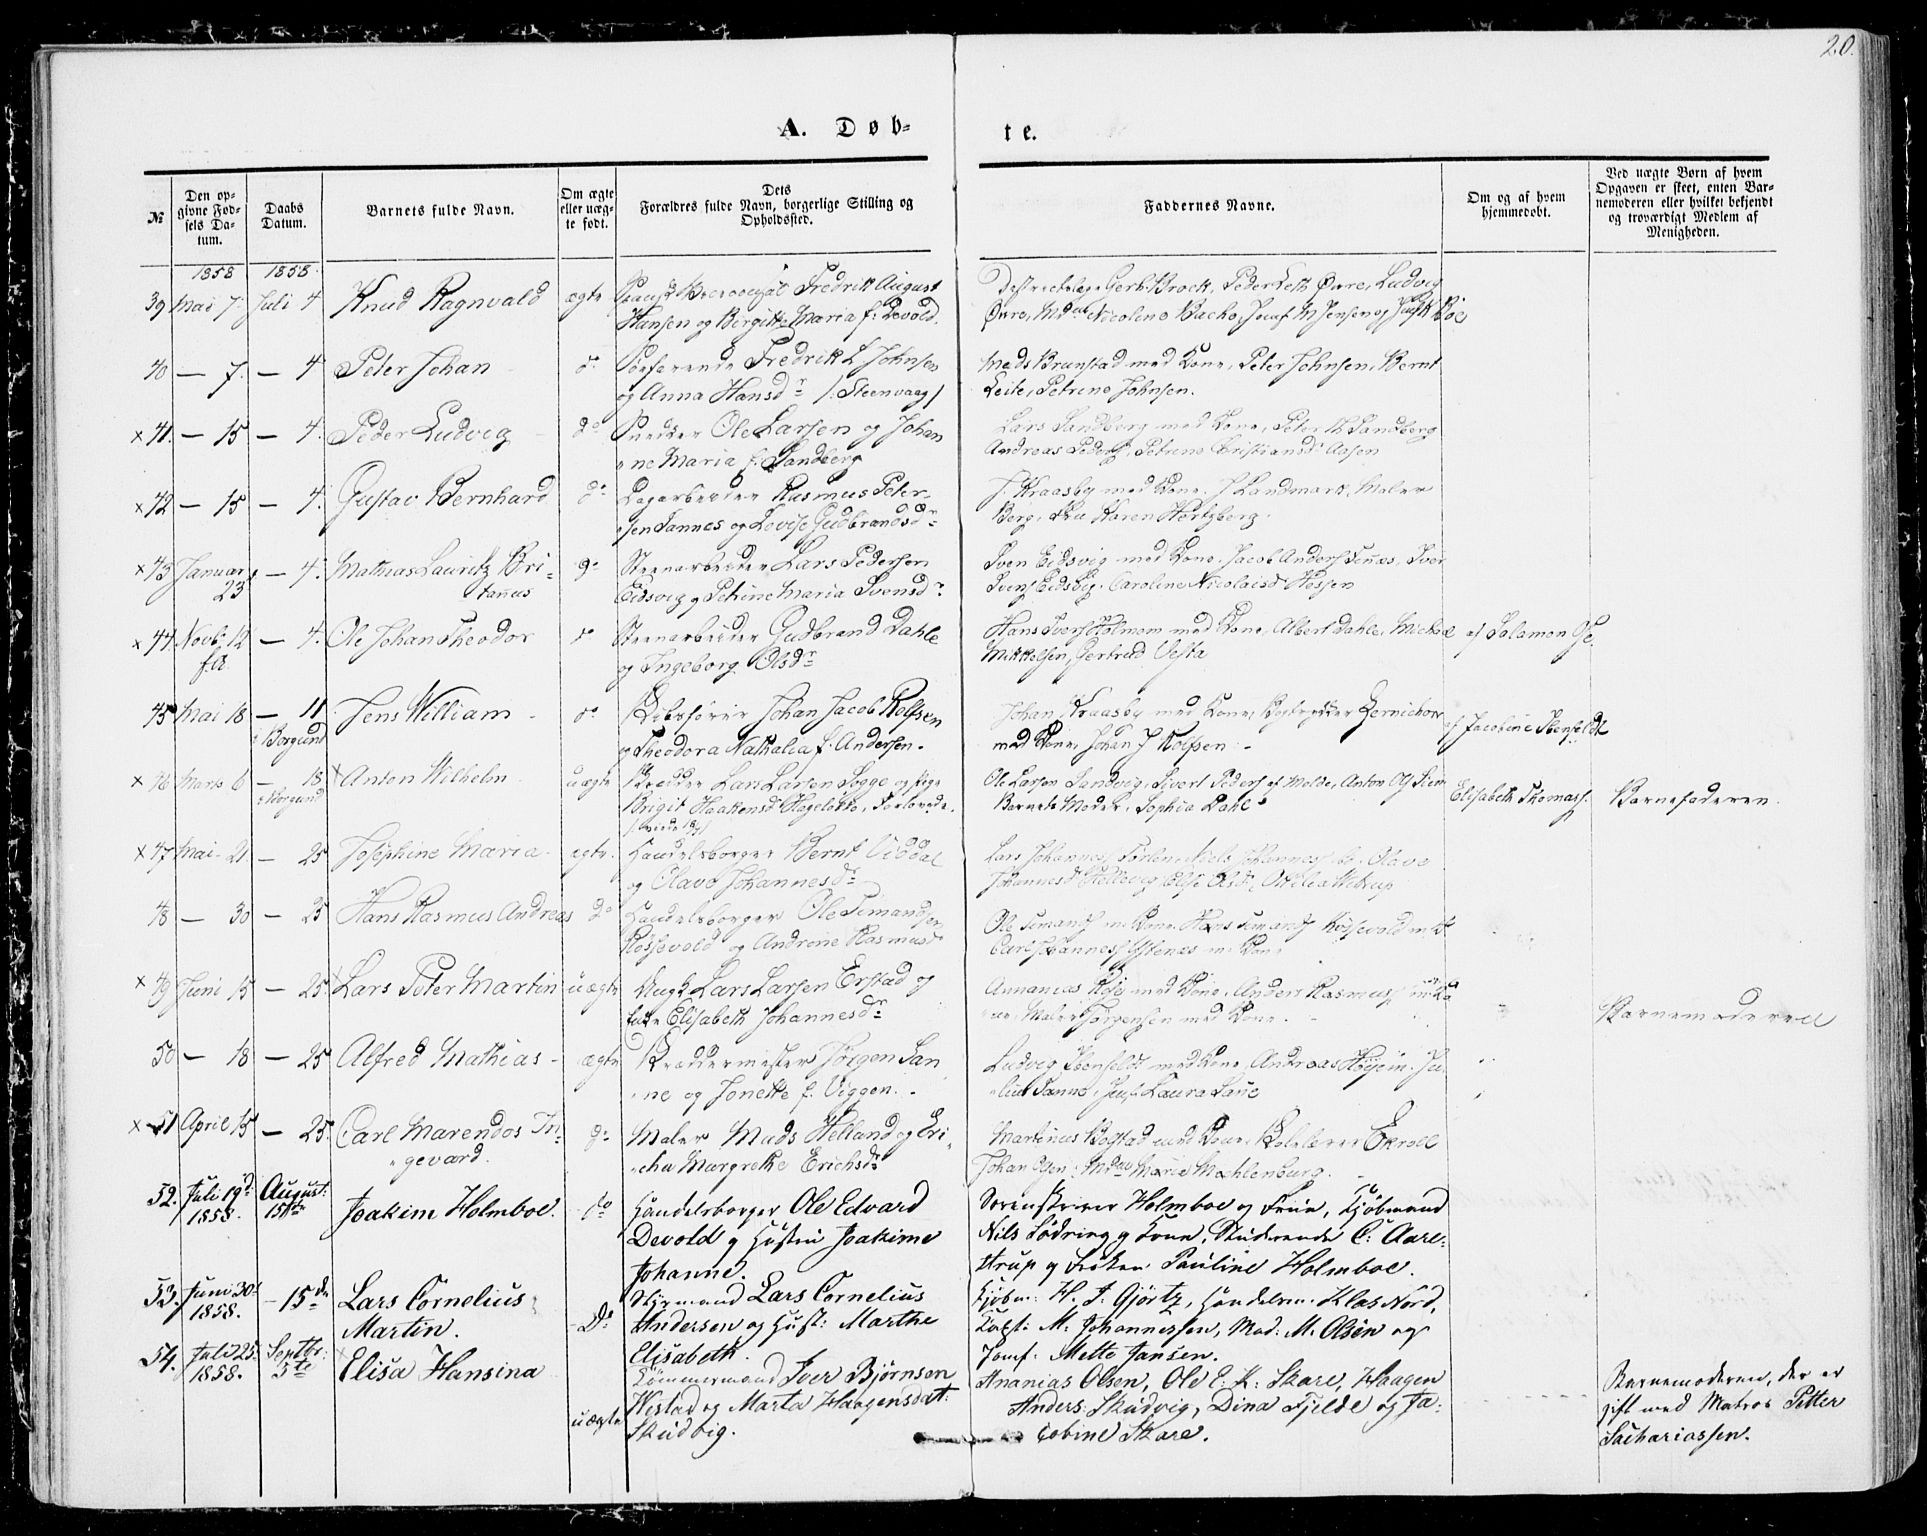 20.
A. Døb-
te.
№
Den op-
givne Fød-
sels Da-
tum.
Daabs
Datum.
Barnets fulde Navn.
Om ægte
eller uæg-
te født.
Dets
Forældres fulde Navn, borgerlige Stilling og
Opholdssted.
Faddernes Navne.
Om og af hvem
hjemmedøbt.
Ved uægte Børn af hvem
Opgaven er skeet, enten Bar-
nemoderen eller hvilket bekjendt
og troværdigt Medlem af
Menigheden.
1858 1858
39 Mai 7. Juli 4 Knud Ragnvald ægte Fredrik August
Hansen og Birgitte Maria f. Devold.
Gert Brock, Peder Øvre, Ludvig
Øvre, Nicoline Backe,
40 — 7. — 4 Peter Johan do Fredrik L Johnsen
og Anna Hansdr /: Steenvaag /
Mads Brunstad med Kone, Peter Johnsen, Bernt
Leite, Petrine Johnsen.
x 41. — 15 — 4. Peder Ludvig do Ole Larsen og Johan
ne Maria f. Sandberg
Lars Sandberg med Kone, Peter Sandberg
Andreas Peders, Petrine Christiansdr Aasen
x 42 — 15 — 4. Gustav Bernhard do Dagarbeider Rasmus Peter-
sen Sannes og Lovise Gudbrandsdr
J. Kraasby med Kone, J Landmark, Maler
Berg, Karen Hertzberg.
x 43 Januar — 4. Mathias Lauritz Bri- do Steenarbeider Lars Pedersen
23 tanus Eidsvig og Petrine Maria Svensdr
Sven Eidsvig med Kone, Jacob Anders
Svens Eidsvig. Caroline Nicolaisdr Hessen
x 44 Novb. 12 — 4. Ole Johan Theodor do Steenarbeider Gudbrand Dahle
f.A. og Ingeborg Olsdr
Hans Ivers Holmem med Kone, Albert Dahle, Michael
Mikkelsen, Gertrud Vesta
af Salamon
45 Mai 18 — 11 Jens William Skibsfører Johan Jacob Rolfsen
i Borgund og Theodora Nathalia f. Andersen.
Johan Kraasby med Kone, Zernichow
med Kone, Johan J Rolfsen.
af Jacobine Ibenfeldt
x 46 Marts 6 — 18 Anton Wilhelm uægte Lars Larsen Sogge og Pige
i Borgund Brigit Haakensdr, Forlovede.
Ole Larsen Sandvig, Sivert Peders af Molde, Anton
Barnets Moder, Sophia Dahl
Elisabeth Thomass.
Barnefaderen.
x 47 Mai 21 — 25 Josephine Maria ægte. Handelsborger Bernt Uddal
og Olave Johannesdr
Lars Johannes, Niels Johannes, Olave
Johannesd Hellevig, Else Olsdr,
48 — 30 — 25 Hans Rasmus Andreas do Handelsborger Ole Simands
Røssevold og Andrine Rasmusd
Ole Simands m. Kone, Hans Simands Røssevold m. K
Carl Johannes m. Kone
x 49 Juni 15 — 25 Lars Peter Martin uægte Lars Larsen Erstad og
Elisabeth Johannesdr
Annanias med Kone, Anders Rasmuss
Maler Jørgensen med Kone.
Barnemoderen
50 — 18 — 25 Alfred Mathias ægte Skræddermester Jørgen San
ne og Jonette f. Viggen.
Ludvig Ibenfeldt med Kone, Andreas Høgein, Ju-
lius Sanne, Laura Sane
x 51 April 15 — 25 Carl Marendos In- do Maler Mads Helland og Eri-
gevard. cka Margrethe Erichsdr
Martinus Bogstad med Kone, Ekroll
Johan, Maria Mecklenburg.
52. Juli 19d August Joakim Holmboe. do Handelsborger Ole Edvard
1858. 15de Devold og Hustru Joakime
Johanne.
Sorenskriver Holmboe og Frue, Kjøbmand
Nils Lødring og Kone, Studerende C: Aare-
strup og Frøken Pauline Holmboe.
53. Juni 30d — 15de Lars Cornelius Do Styrmand Lars Cornelius
1858. Martin. Andersen og Hust: Marthe
Elisabeth.
Kjøbm: H. J. Gjørtz, Handelsm. Klas Nord,
M. Johannessen, Mad: M. Olsen og
Jomf: Mette Jansen.
54. Juli 25 Septbr: Elisa Hansina uægte Tømmermand Iver Bjørnsen
1858. 5te Wistad og Marta Haagensdat:
Skudvig.
Ananias Olsen, Ole E: K: Skare, Haagen
Anders: Skudvig, Dina Fjelde og Ja-
cobine Skare.
Barnemoderen, der er
gift med Matros Petter
Sachariassen.